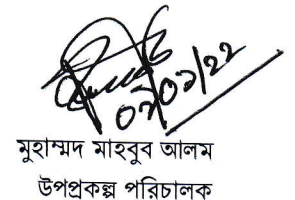 ০৭/০১/২২
মুহাম্মদ মাহবুব আলম
উপপ্রকল্প পরিচালক